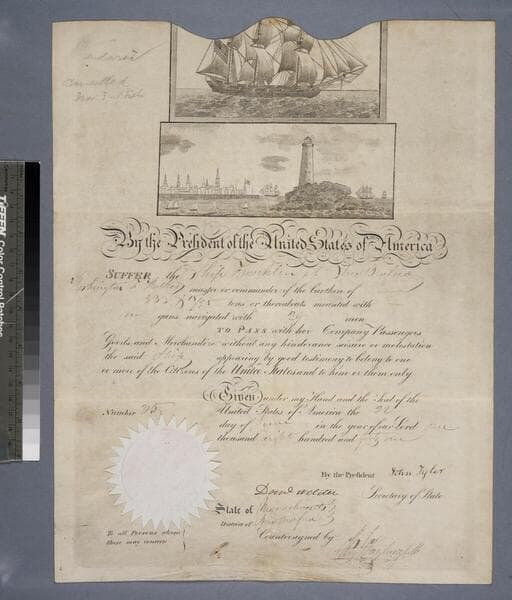 Cancelled
By the President of the United States of America
SUFFER the Ship Franklin of New Bedford
master or commander of the burthen of
tons or thereabouts mounted with
no guns navigated with men
TO PASS with her Company Passengers
Goods and Merchandize without any hinderance seisure or molestation
the said Ship appearing by good testimony to belong to one
or more of the Citizens of the United States and to him or them only
Given under my Hand and the Seal of the
Number 35
United States of America the 22
day of June in the year of our Lord one
thousand eight hundred and
By the President John Tyler
Secretary of State
State of Massachusetts
District of New Bedford
To all Persons whom
these may concern
Countersigned by
TIFFEN Color Control Patches